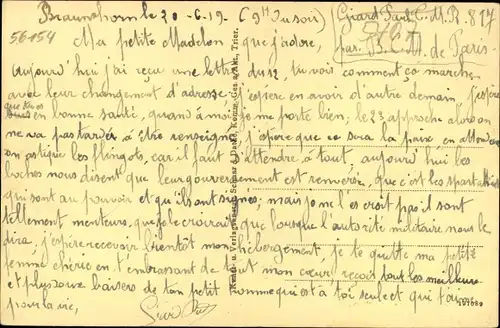 Braunshorn le 20-6-19 (9h du soir) (Girard Paul C.M.R. 817
56154 5161
Ma petite Madelon que j'adore, par B.C.M. de Paris
Aujourd'hui j'ai reçu une lettre du 12, tu vois comment ça marche
avec leur changement d'adresse, j'espère en avoir d'autre demain, j'espère
que tu es en bonne santé, quand à moi je me porte bien, le 23 approche alors on
ne va pas tarder à être renseigné, j'espère que ce sera la paix, en attendant
on astique les flingots, car il faut s'attendre à tout, aujourd'hui les
boches nous disent que leur gouvernement est renversé, que c'est les spartakistes
qui sont au pouvoir et qu'ils ont signés, mais je ne les crois pas il sont
tellement menteurs, que je le croirais que lorsque l'autorité militaire nous le
dira, j'espère recevoir bientôt mon hébergement, je te quitte ma petite
femme chérie en t'embrassant de tout mon cœur, reçois tous les meilleurs
et plus doux baisers de ton petit homme qui est à toi seule et qui t'aime
pour la vie,
Girard Paul
Kunst- u. Verlagsanstalt Schaar & Dathe, Komm.-Ges. a/Akt., Trier.